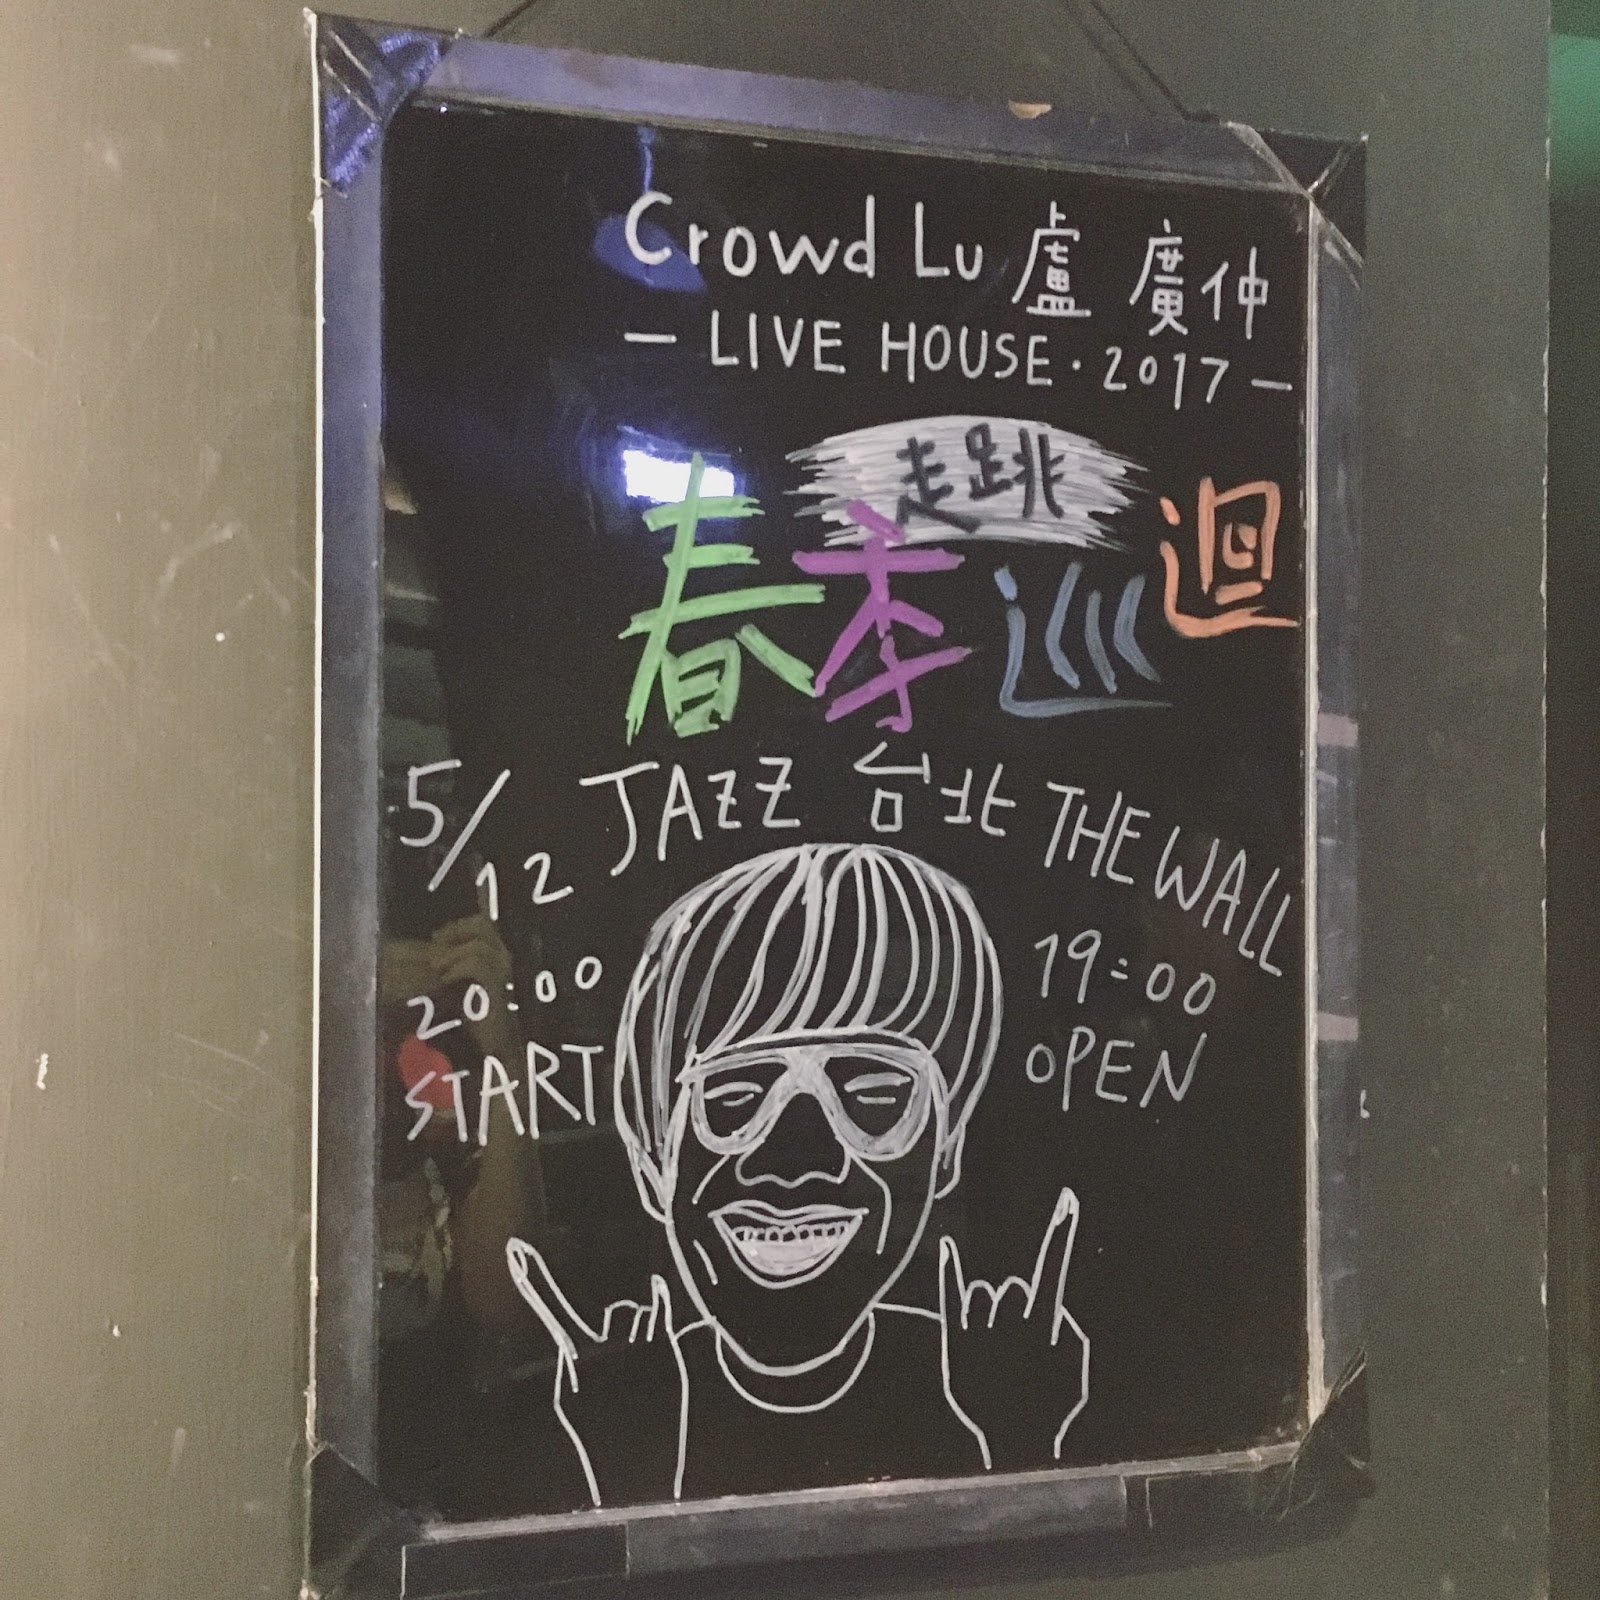 Crowd Lu 盧廣仲
- LIVE HOUSE · 2017 -
走跳
春季巡迴
5/12 JAZZ 台北 THE WALL
20:00 START
19:00 OPEN